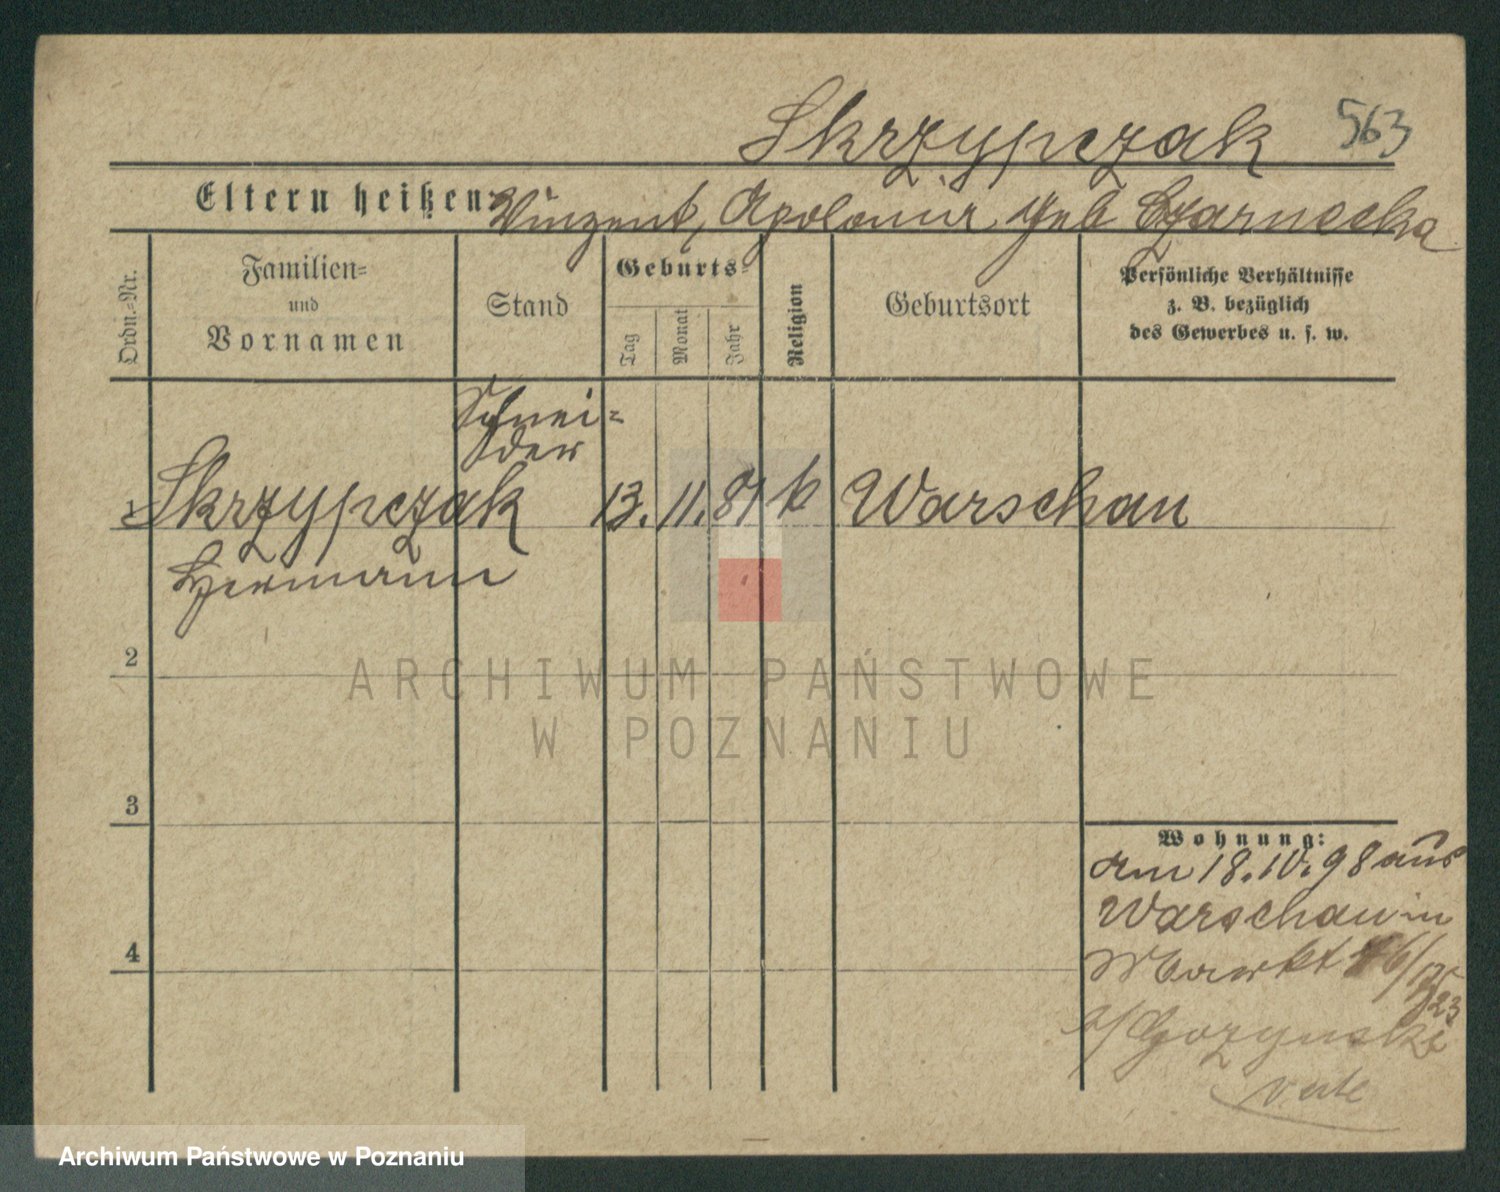 Skrzypczak 563
Eltern heißen: Vinzent, Apolonia geb Czarnecka
Ordn.=Nr.
Familien=
und
Vornamen
Stand
Geburts=
Tag
Monat
Jahr
Religion
Geburtsort
Persönliche Verhältnisse
z. B. bezüglich
des Gewerbes u. s. w.
Schnei=
der
1 Skrzypczak 13. 11. 81 k Warschau
Hermann
2
ARCHIWUM PAŃSTWOWE
W POZNANIU
3
Wohnung:
Am 18.10.98 aus
Warschau in
4
Markt
verte
Archiwum Państwowe w Poznaniu